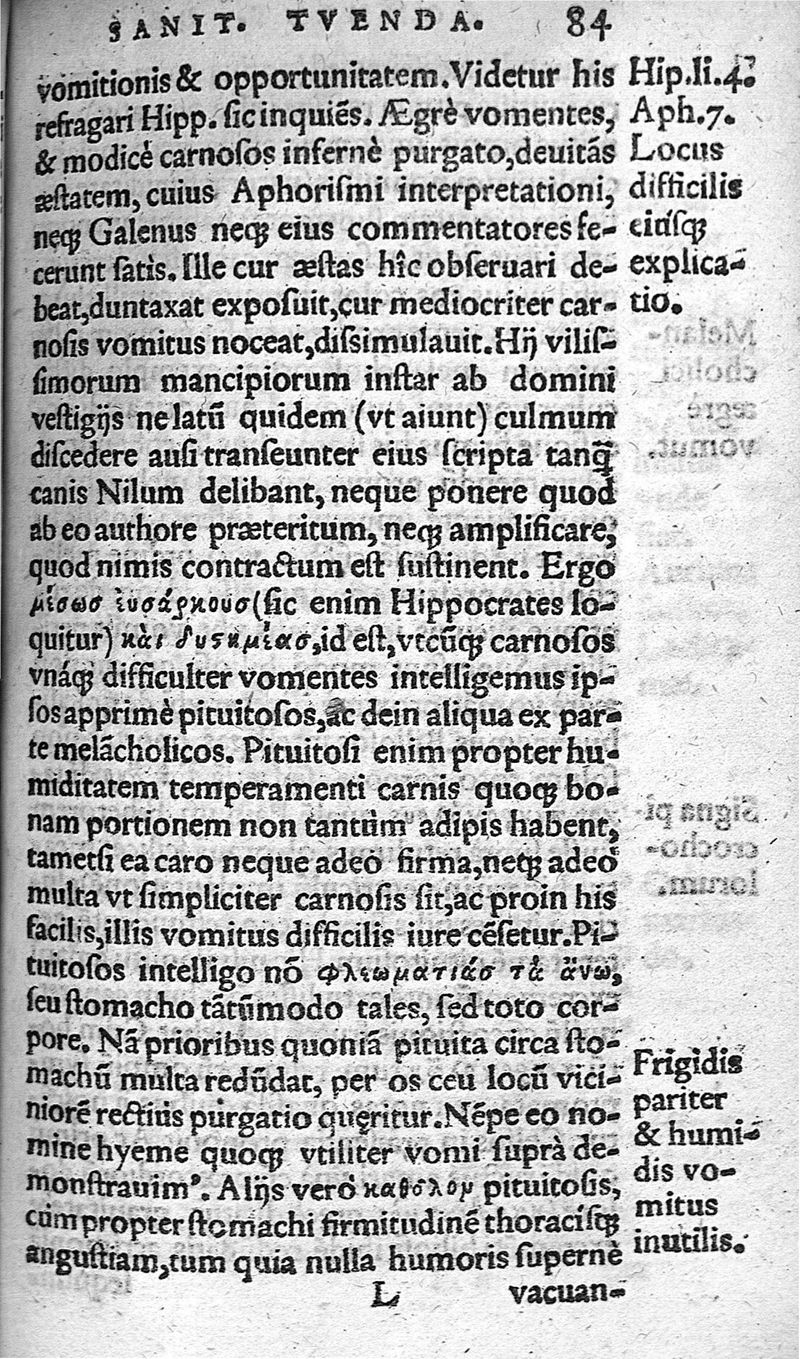 SANIT. TVENDA. 84
vomitionis & opportunitatem. Videtur his
refragari Hipp. ſic inquiẽs. Ægrè vomentes,
& modicè carnoſos infernè purgato, deuitãs
æſtatem, cuius Aphoriſmi interpretationi,
neqꝫ Galenus neqꝫ eius commentatores fe-
cerunt ſatis. Ille cur æſtas hîc obſeruari de-
beat, duntaxat expoſuit, cur mediocriter car-
noſis vomitus noceat, diſsimulauit. Hij viliſ-
ſimorum mancipiorum inſtar ab domini
veſtigijs ne latũ quidem (vt aiunt) culmum
diſcedere auſi tranſeunter eius ſcripta tanꝗ̃
canis Nilum delibant, neque ponere quod
ab eo authore præteritum, neqꝫ amplificare,
quod nimis contractum eſt ſuſtinent. Ergo
μέσωσ ἐυσάρκουσ (ſic enim Hippocrates lo-
quitur) καὶ δυςημέασ, id eſt, vtcũqꝫ carnoſos
vnáqꝫ difficulter vomentes intelligemus ip-
ſos apprimè pituitoſos, ac dein aliqua ex par-
te melãcholicos. Pituitoſi enim propter hu-
miditatem temperamenti carnis quoqꝫ bo-
nam portionem non tantùm adipis habent,
tametſi ea caro neque adeò firma, neqꝫ adeò
multa vt ſimpliciter carnoſis ſit, ac proin his
facilis, illis vomitus difficilis iure cẽſetur. Pi-
tuitoſos intelligo nõ φλεωματιάσ τὰ ἄνω,
ſeu ſtomacho tãtũmodo tales, ſed toto cor-
pore. Nã prioribus quoniã pituita circa ſto-
machũ multa redũdat, per os ceu locũ vici-
niorẽ rectiùs purgatio quęritur. Nẽpe eo no-
mine hyeme quoqꝫ vtiliter vomi ſuprà de-
monſtrauimꝰ. Alijs verò καθολου pituitoſis,
cùm propter ſtomachi firmitudinẽ thoraciſqꝫ
anguſtiam, tum quia nulla humoris ſupernè
L vacuan-
Hip. li. 4.
Aph. 7.
Locus
difficilis
eiuſqꝫ
explica-
tio.
Frigidis
pariter
& humi-
dis vo-
mitus
inutilis.